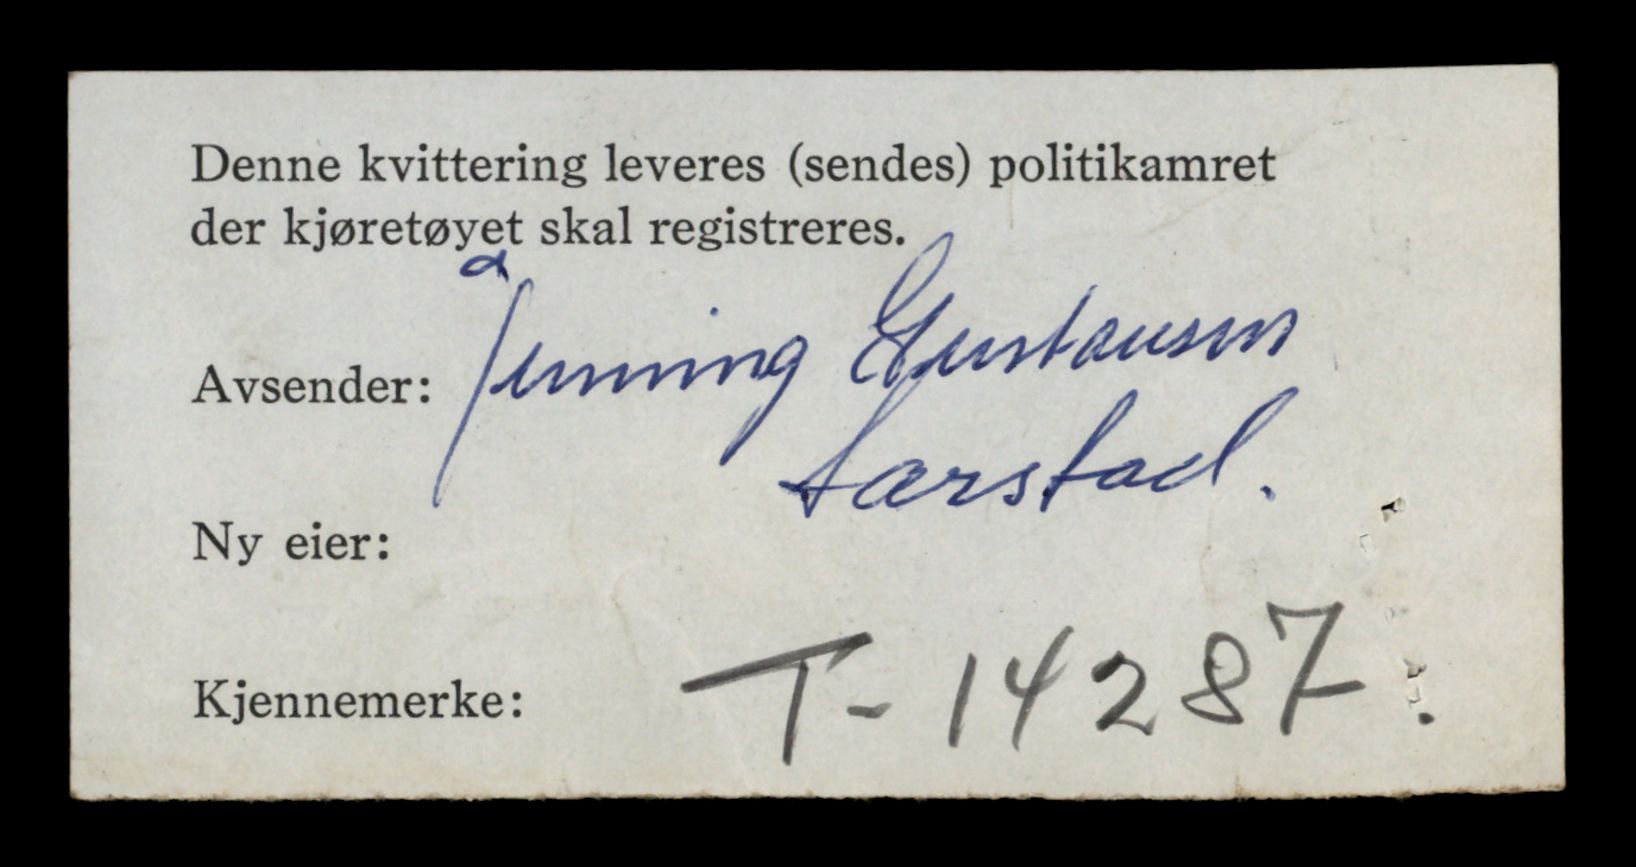 Denne kvittering leveres (sendes) politikamret
der kjøretøyet skal registreres.
Avsender: Henning Gustavsen
Sarstad.
Ny eier:
Kjennemerke: T-14287.